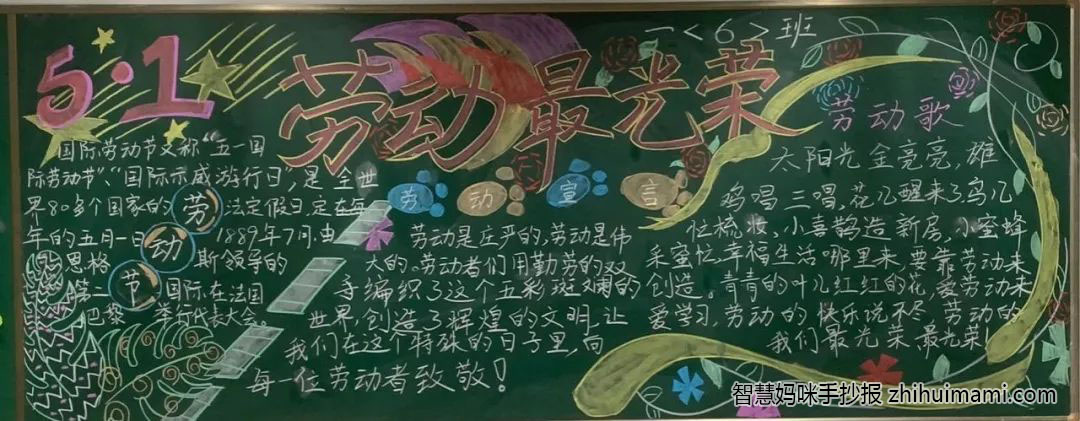 5·1
劳动最光荣
一<6>班
国际劳动节又称“五一国
际劳动节”、“国际示威游行日”,是全世
界80多个国家的劳法定假日,定在每
年的五月一日动1889年7月,由
恩格斯领导的
第二节国际在法国
巴黎举行代表大会
劳动宣言
劳动是庄严的,劳动是伟
大的。劳动者们用勤劳的双
手编织了这个五彩斑斓的
世界,创造了辉煌的文明,让
我们在这个特殊的日子里,向
每一位劳动者致敬!
劳动歌
太阳光金亮亮,雄
鸡唱三唱,花儿醒来了,鸟儿
忙梳妆、小喜鹊造新房,小蜜蜂
采蜜忙,幸福生活哪里来,要靠劳动来
创造。青青的叶儿红红的花,爱劳动来
爱学习,劳动的快乐说不尽,劳动的
我们最光荣,最光荣!
智慧妈咪手抄报 zhihuimami.com